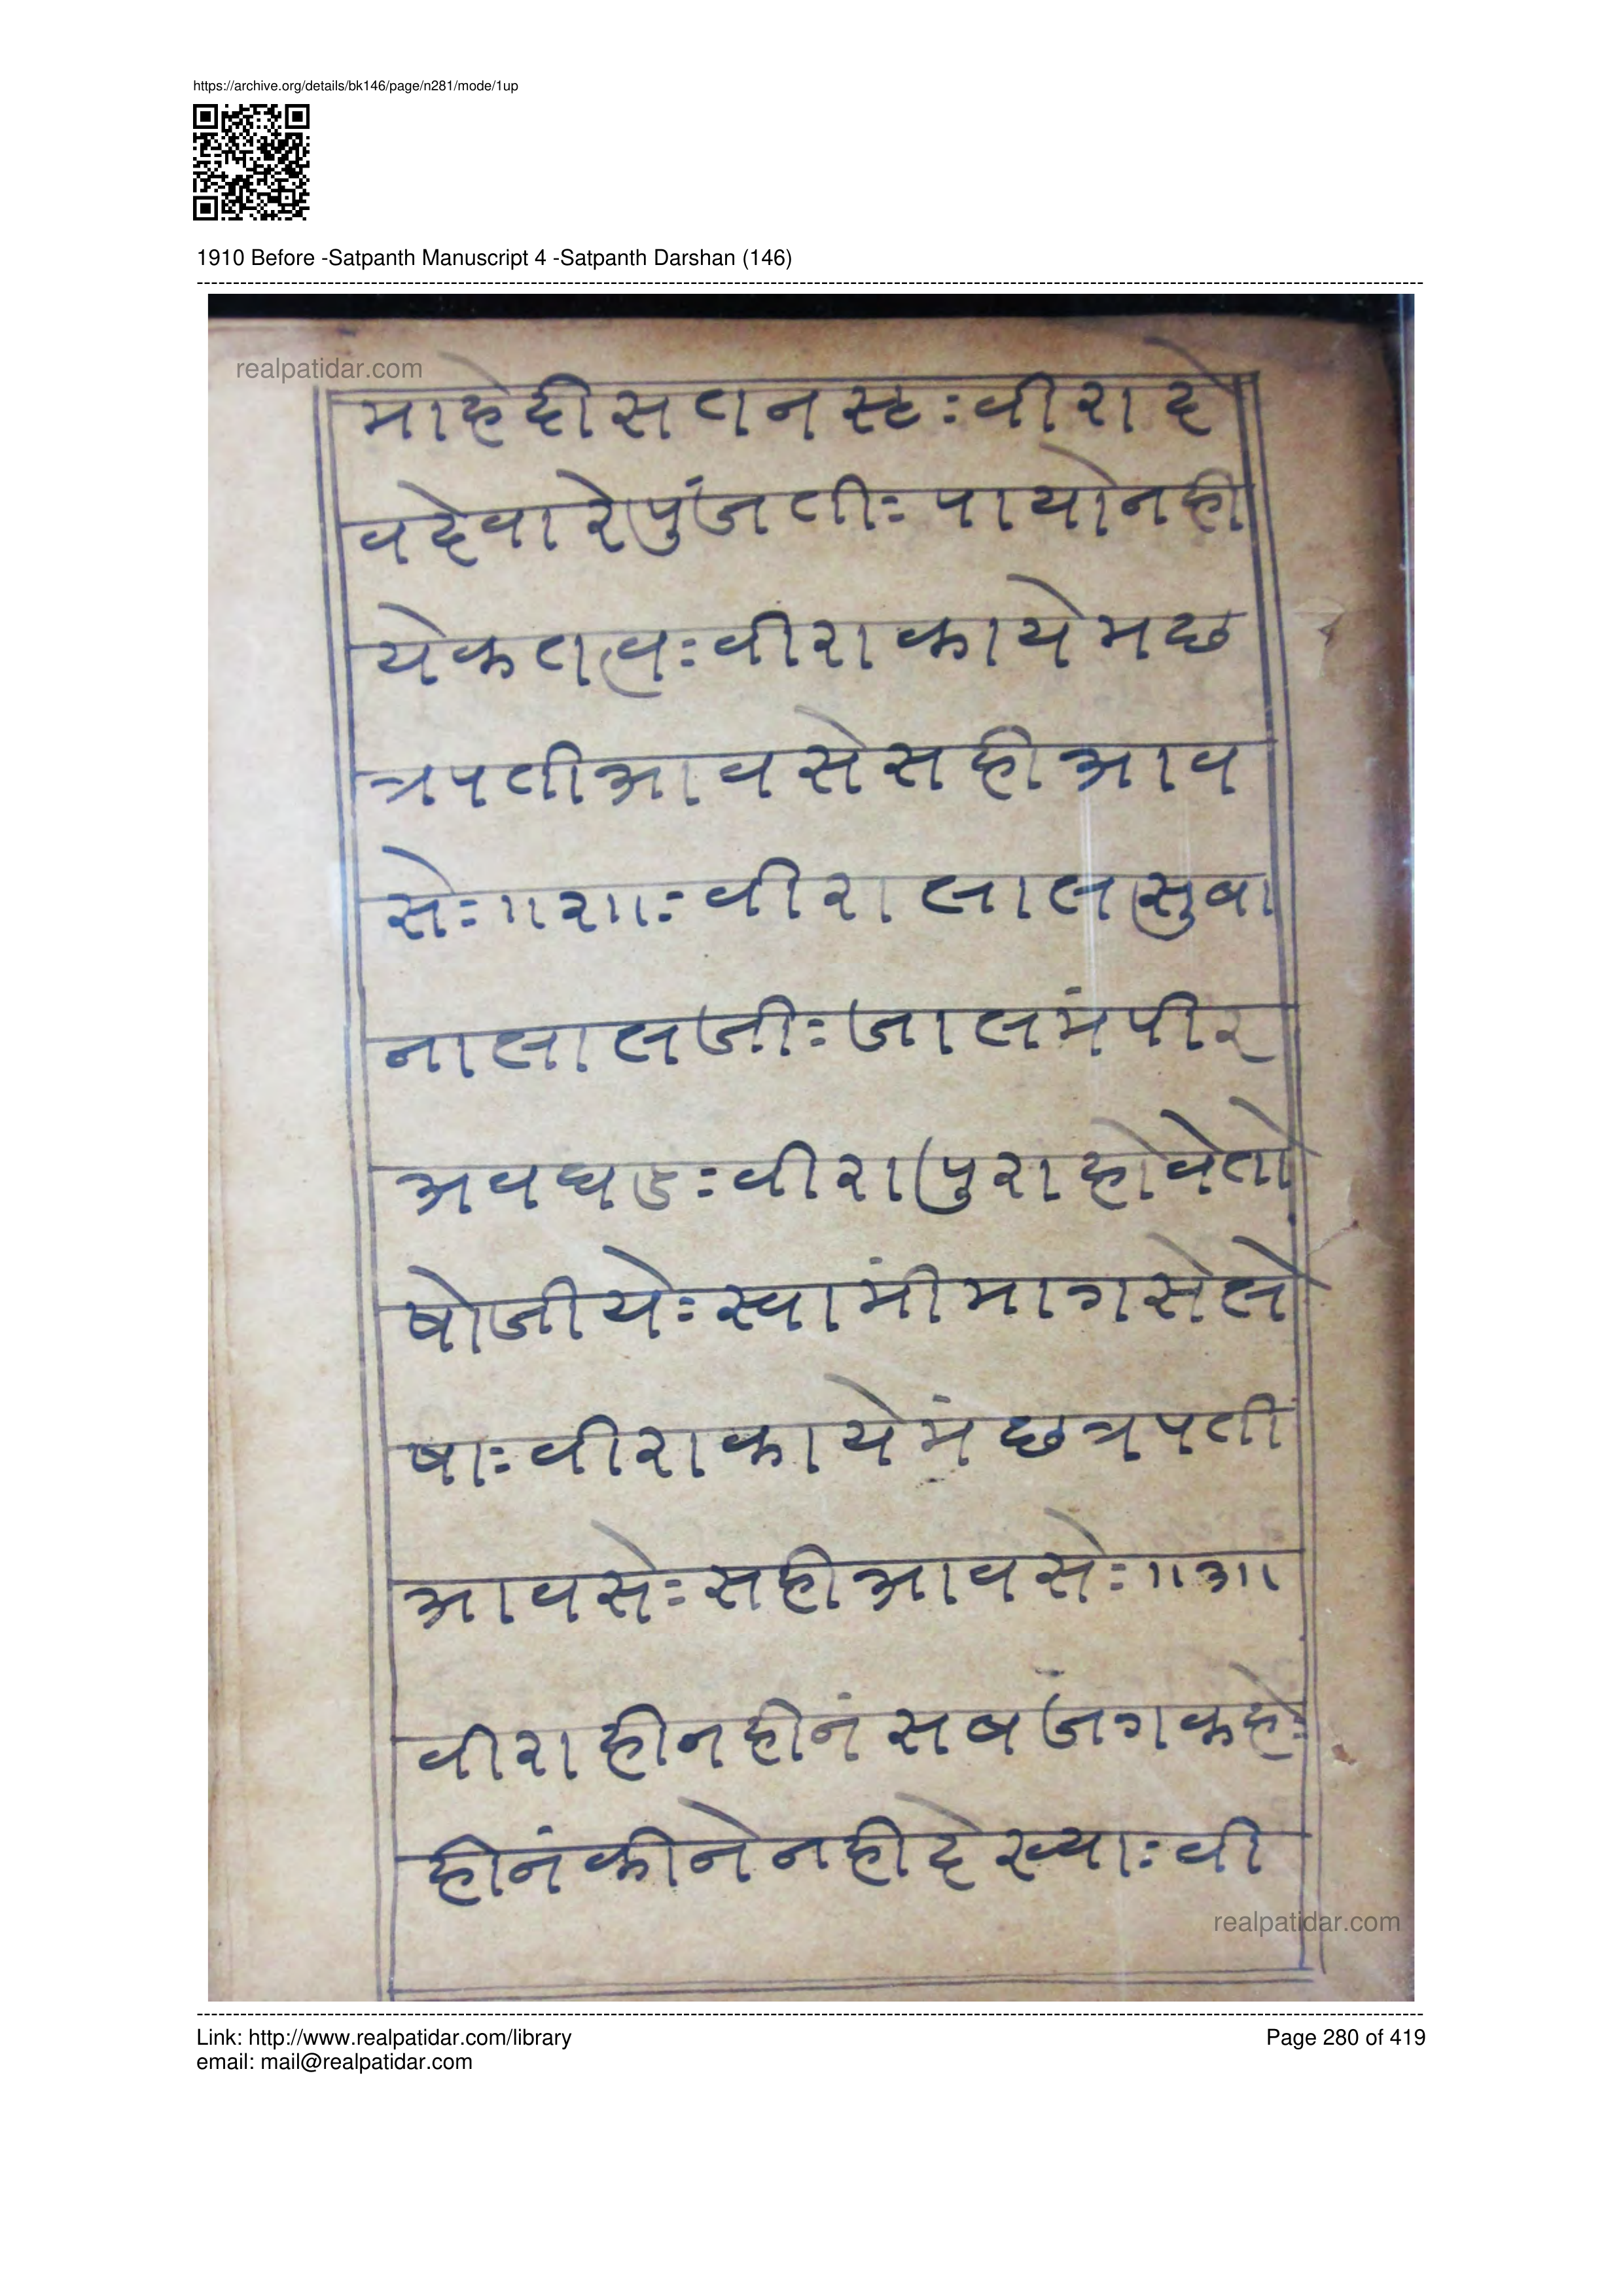 https://archive.org/details/bk146/page/n281/mode/1up
1910 Before -Satpanth Manuscript 4 -Satpanth Darshan (146)
realpatidar.com
माहेदीसतनस्ट:वीरादे
वदेवारेपुंजती:पायोनही
येकतील:वीराकायेमछ
त्रपतीआवसेसहीआव
से:॥२॥:वीरालालसुबा
नालालजी:जालमंपीर
अवघड:वीरापुराहोवेतो
षोजीये:स्वामींमागसेले
षा:वीराकायेमंछत्रपती
आवसे:सहीआवसे:॥३॥
वीराहीनहीनंसबजंगकहे:
हीनंकीनेनहीदेख्या:वी
realpatidar.com
Link: http://www.realpatidar.com/library
Page 280 of 419
email: mail@realpatidar.com